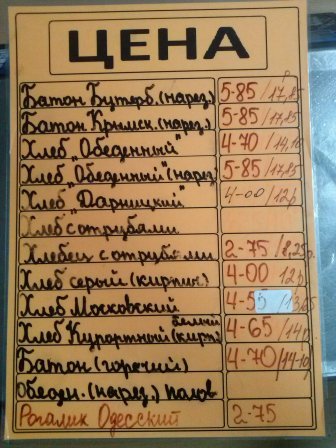 ЦЕНА
Батон Бутерб.(нарез.) 5-85 / 17,85
Батон Крымск.(нарез.) 5-85 / 17,85
Хлеб "Обеденный" 4-70 / 14,10
Хлеб "Обеденный"(нарез) 5-85 / 17,85
Хлеб "Дарницкий" 4-00 / 12р
Хлеб с отрубями
Хлебец с отрубями 2-75 / 8,25р.
Хлеб серый (кирпич.) 4-00 12р
Хлеб Московский 4-55 / 13,65
Хлеб Курортный белый (кирп.) 4-65 / 14р.
Батон (горячий) 4-70 / 14-10
Обеден. (нарез.) полов
Рогалик Одесский 2-75